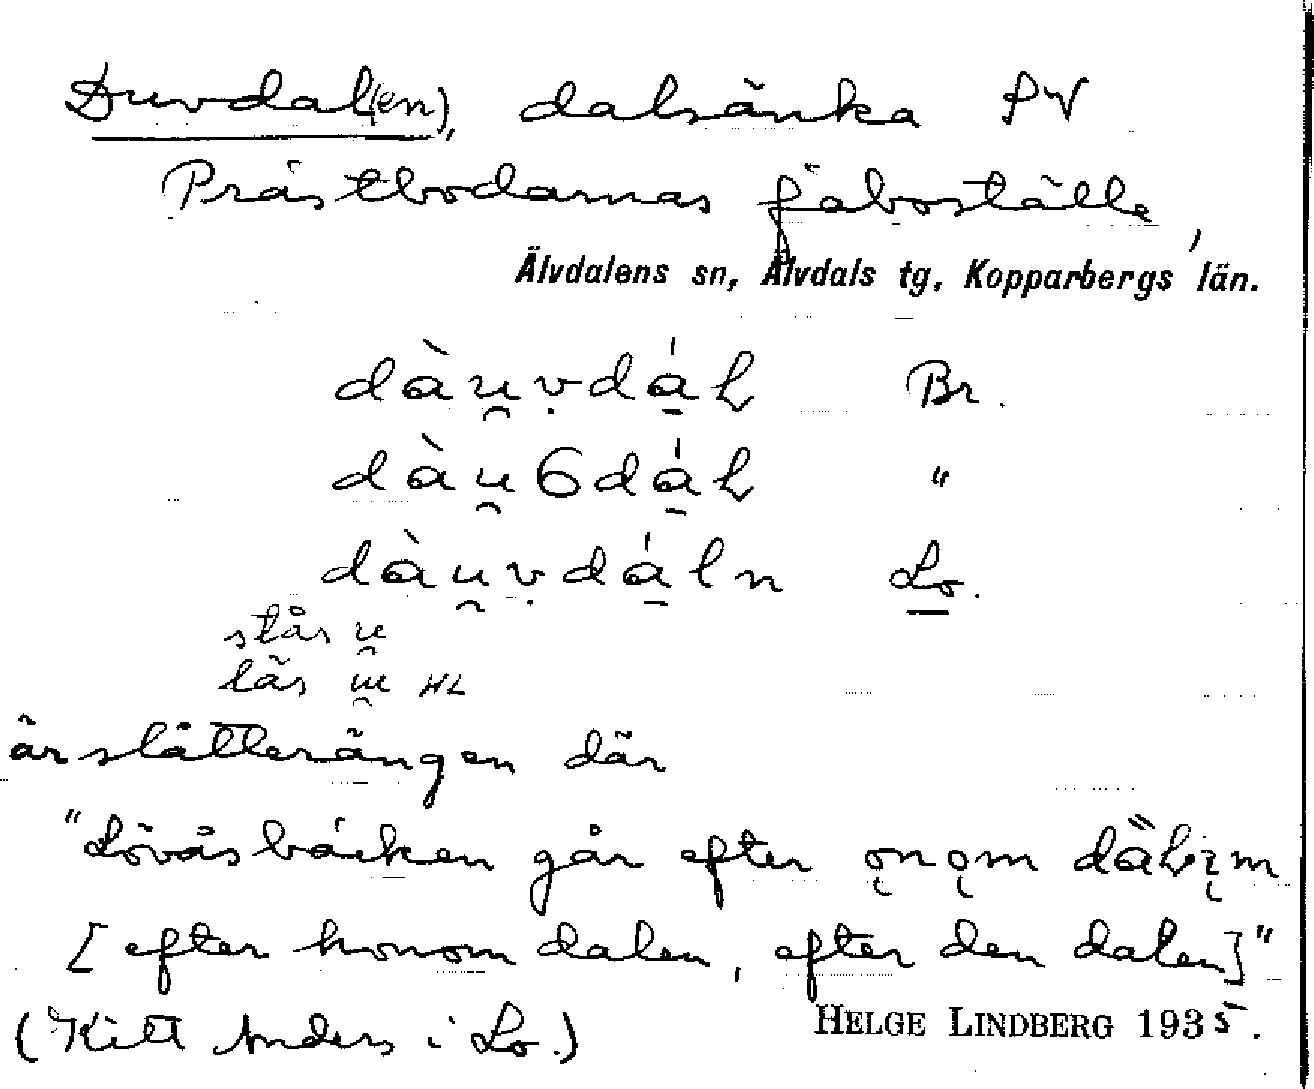 Duvdal(en), dalsänka SV
Prästbodarnas fäboställe,
Älvdalens sn, Älvdals tg, Kopparbergs län.
dàu̯ṿdá̱ł Br.
dàu̯6dá̱ł "
dàu̯ṿdá̱ln Lo.
står u̯
läs ɯ̯ HL
är slåtterängen där
"Lövåsbäcken går efter o̜no̜m dȁłı̨m
[efter honom dalen, efter den dalen]"
(Kitt Anders i Lo.) HELGE LINDBERG 1935.